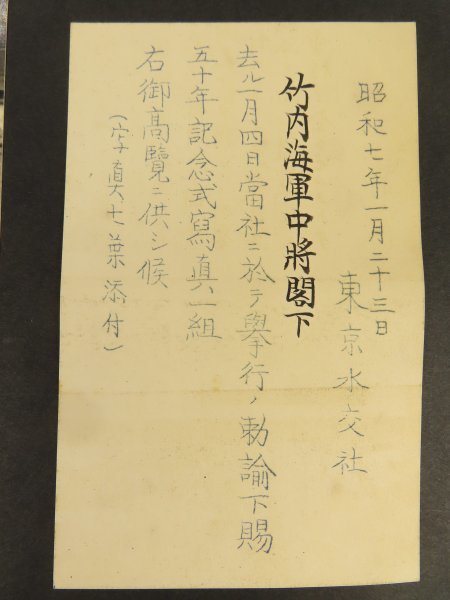 昭和七年一月二十三日
東京水交社
竹内海軍中將閣下
去ル一月四日當社ニ於テ擧行ノ勅諭下賜
五十年記念式寫真一組
右御高覽ニ供シ候
(寫真七葉添付)